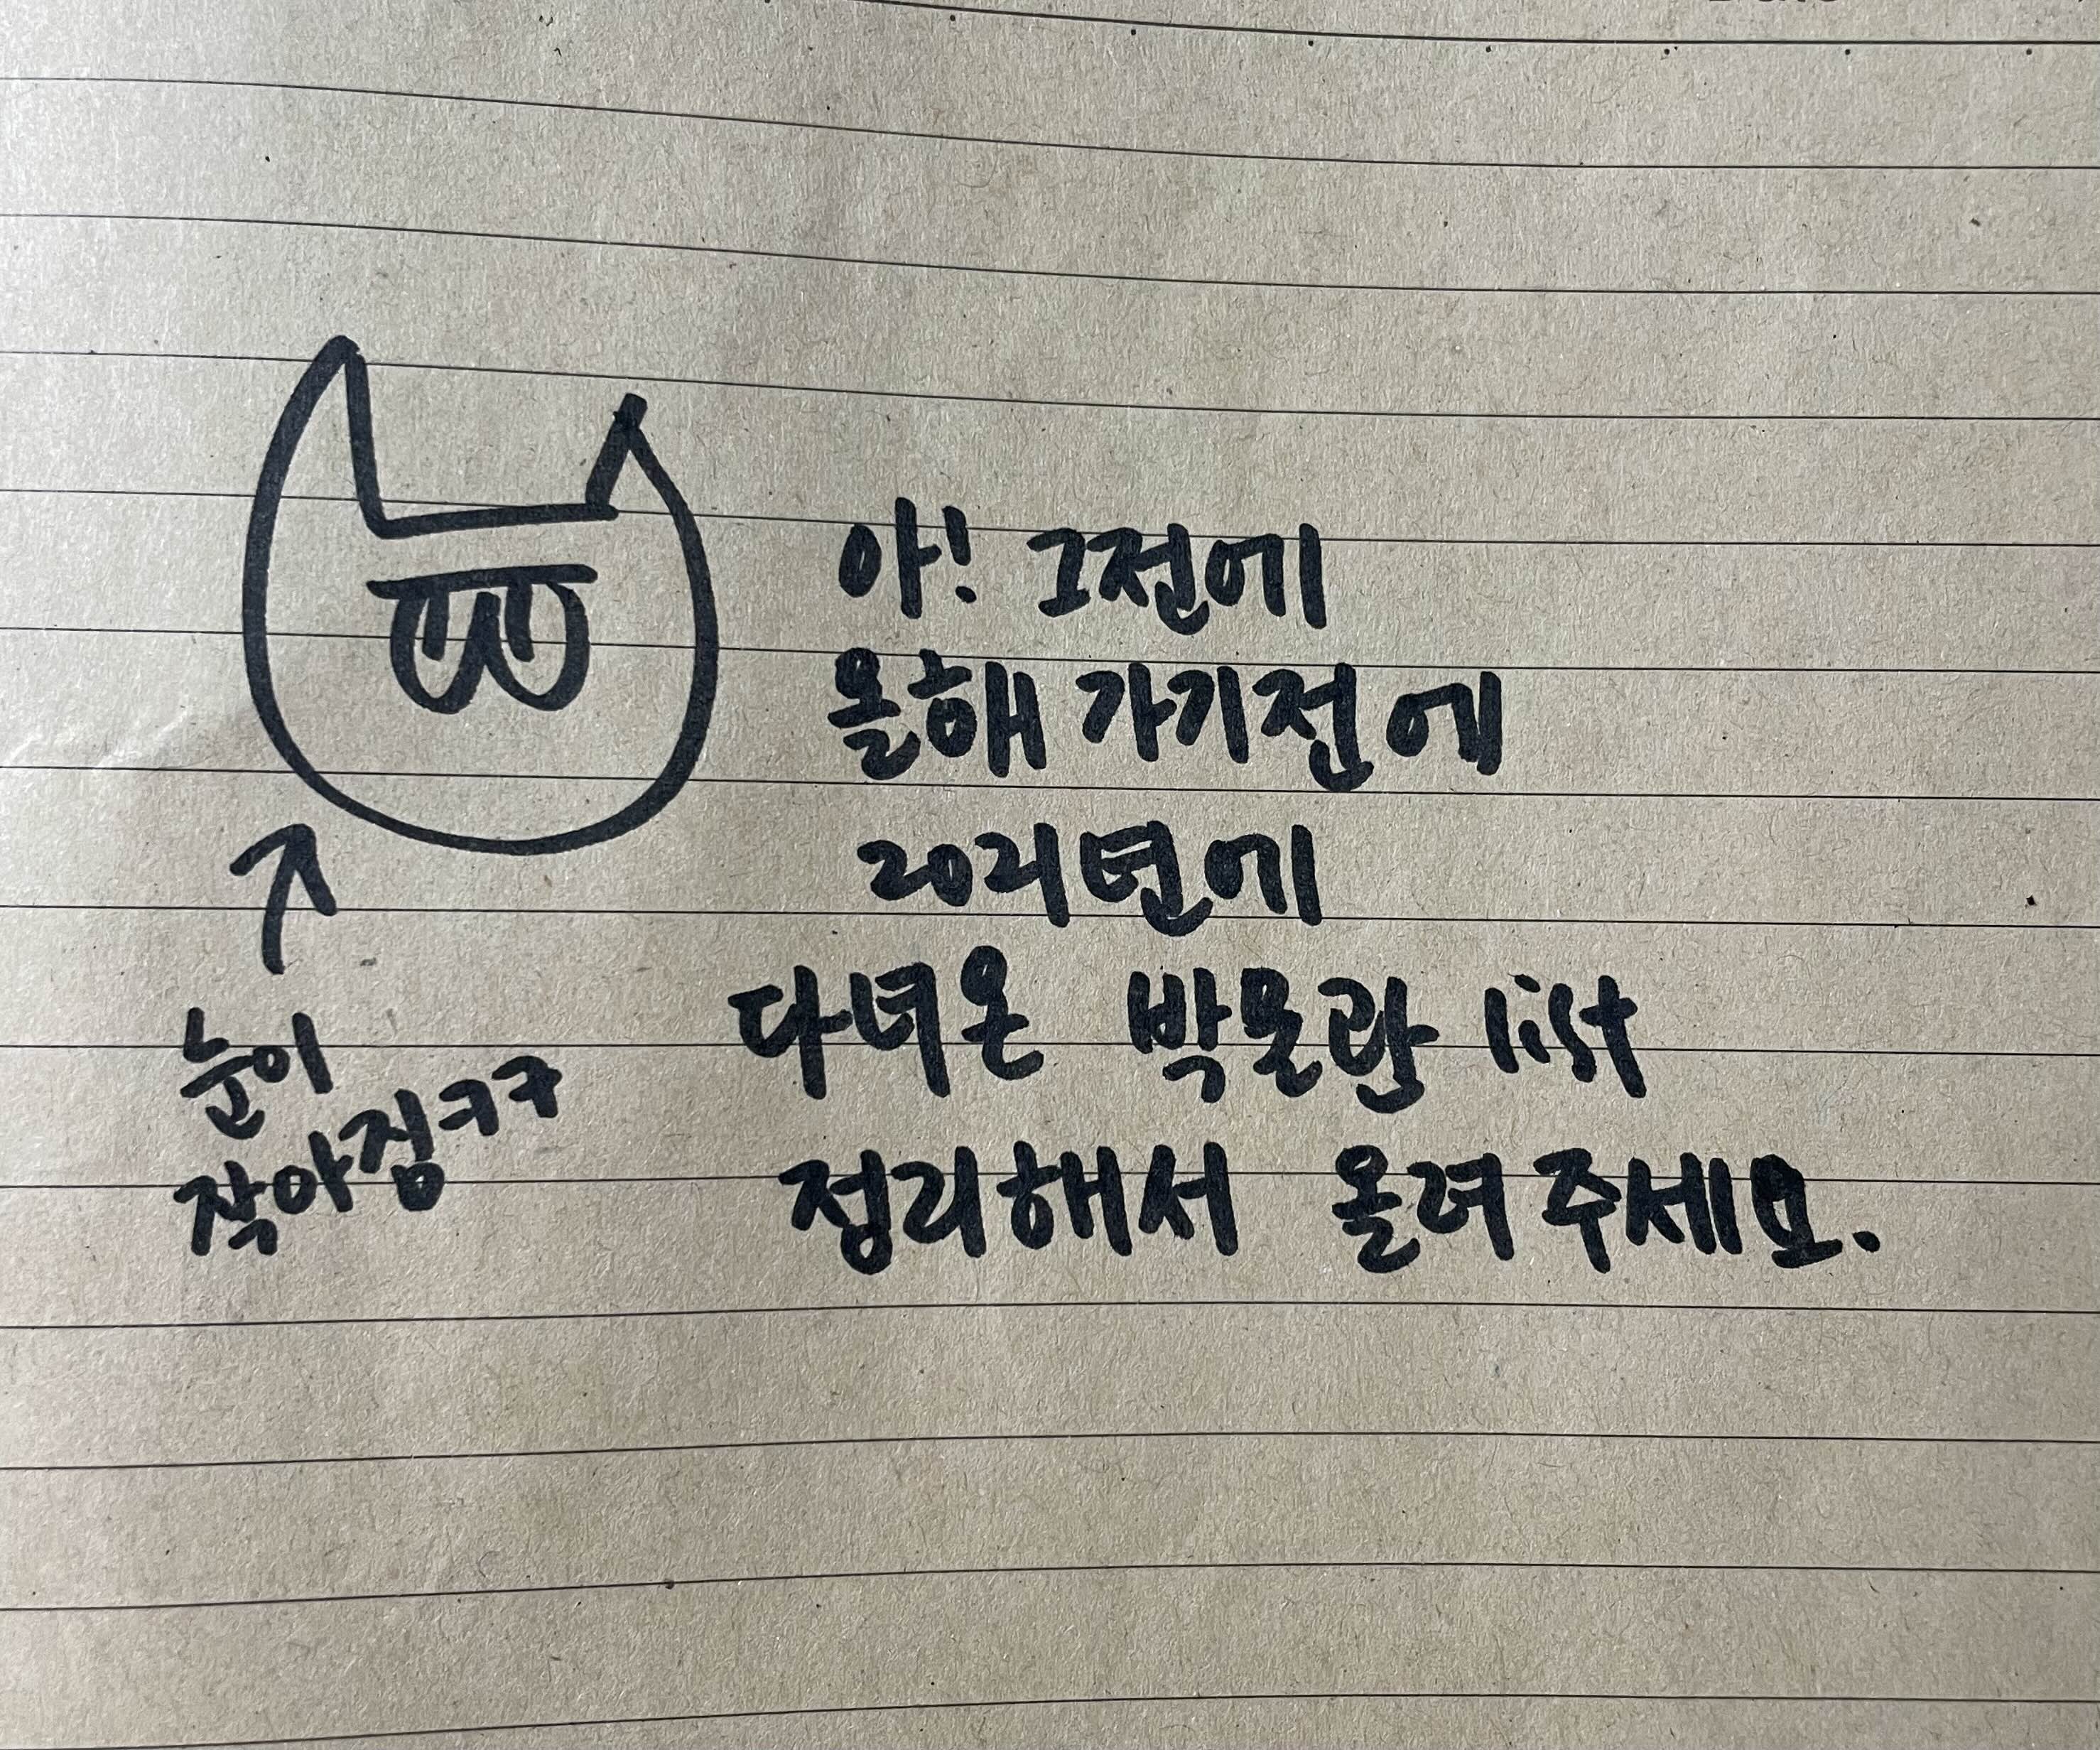 아! 그전에
올해 가기전에
2021년에
다녀온 박물관 list
정리해서 올려주세요.
눈이
작아짐ㅋㅋ